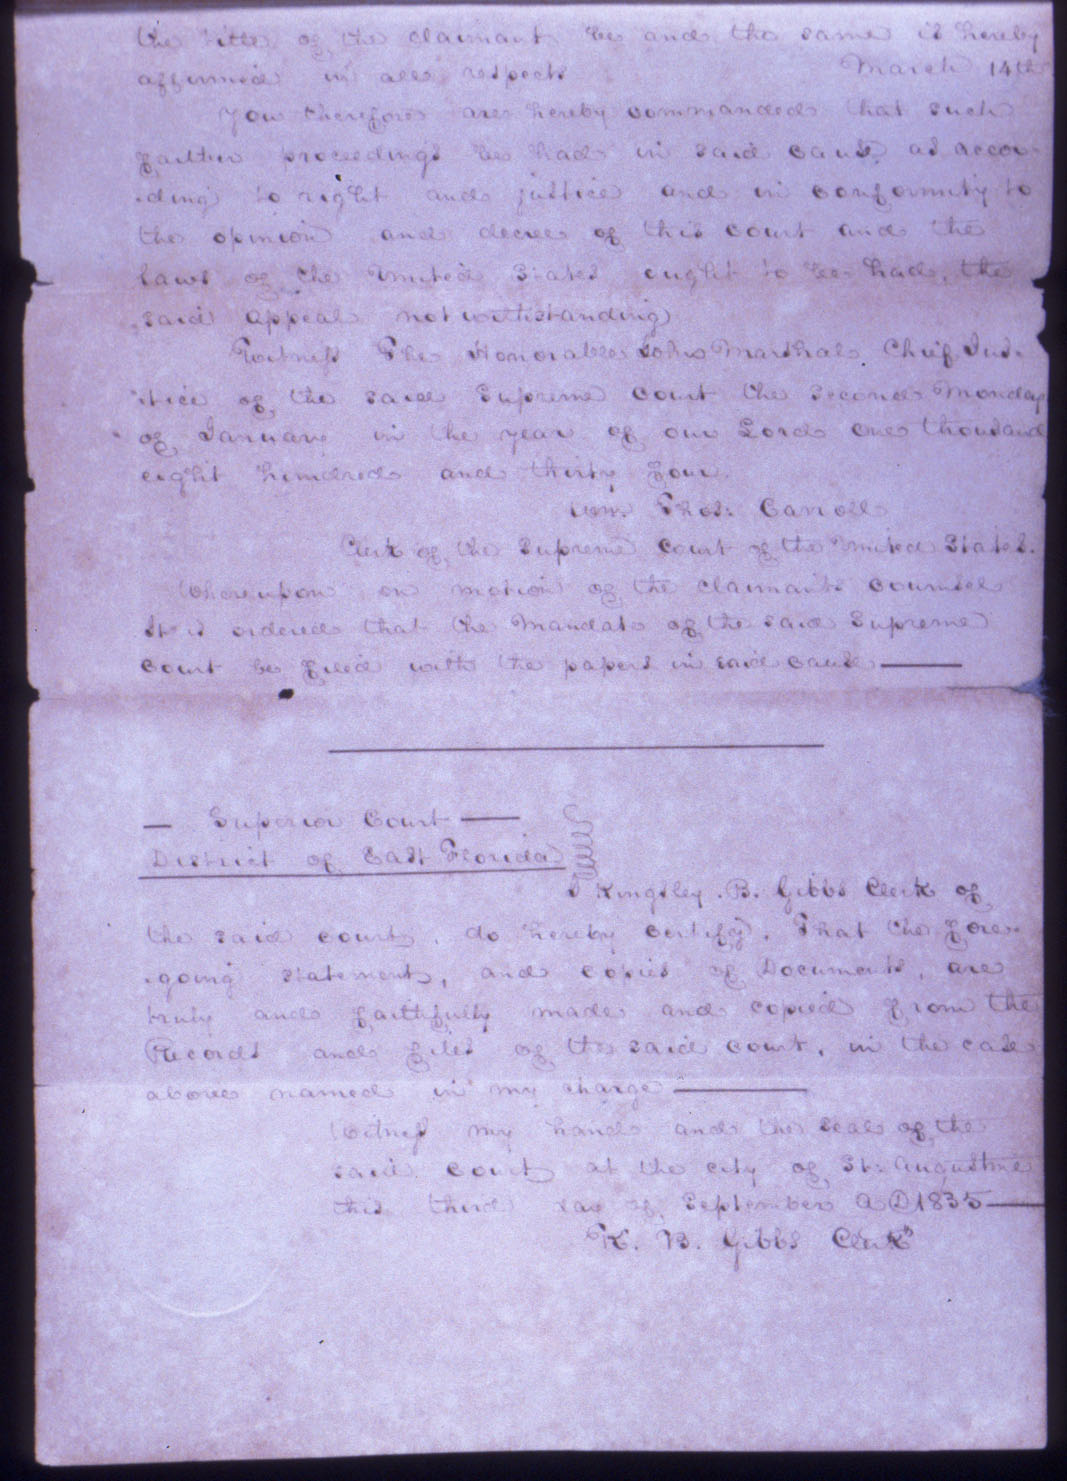 the title of the claimant be and the same is hereby
affirmed in all respects March 14th
You therefore are hereby commanded that such
further proceedings be had in said cause, as accor-
-ding to right and justice and in conformity to
the opinion and decree of this court and the
laws of the United States ought to be had, the
said appeal notwithstanding
Witness The Honorable John Marshal Chief Jus-
-tice of the said Supreme Court the second Monday
of January in the year of our Lord one thousand
eight hundred and thirty four.
Wm. Thos: Carroll
Clerk of the Supreme Court of the United States.
Whereupon on motion of the claimants counsel
It is ordered that the Mandate of the said Supreme
Court be filed with the papers in said cause
Superior Court
District of East Florida
I Kingsley. B. Gibbs Clerk of
the said court, do hereby certify, That the fore-
-going statement, and copies of Documents, are
truly and faithfully made and copied from the
Records and files of the said court, in the case
above named in my charge
Witness my hand and the seal of the
said court at the city of St: Augustine
this third day of September A D 1835
K. B. Gibbs Clerk